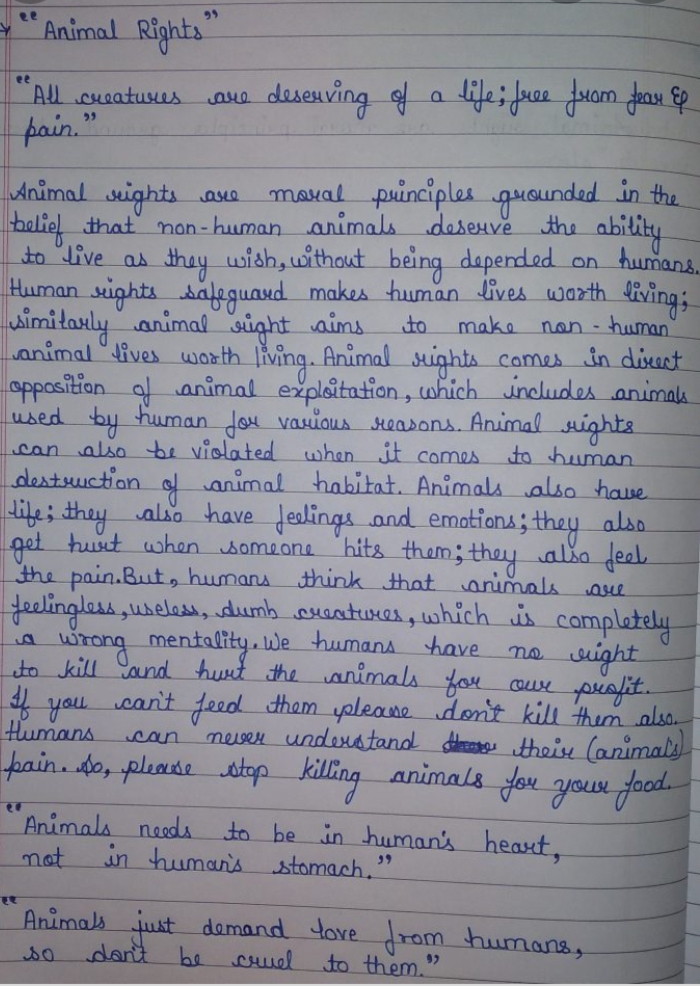 "Animal Rights"
"All creatures are deserving of a life; free from fear &
pain."
Animal rights are moral principles grounded in the
belief that non-human animals deserve the ability
to live as they wish, without being depended on humans.
Human rights safeguard makes human lives worth living;
similarly animal right aims to make non-human
animal lives worth living. Animal rights comes in direct
opposition of animal exploitation, which includes animals
used by human for various reasons. Animal rights
can also be violated when it comes to human
destruction of animal habitat. Animals also have
life; they also have feelings and emotions; they also
get hurt when someone hits them; they also feel
the pain. But, humans think that animals are
feelingless, useless, dumb creatures, which is completely
a wrong mentality. We humans have no right
to kill and hurt the animals for our profit.
If you can't feed them please don't kill them also.
Humans can never understand their (animal's)
pain. So, please stop killing animals for your food.
"Animals needs to be in human's heart,
not in human's stomach."
"Animals just demand love from humans,
so don't be cruel to them."